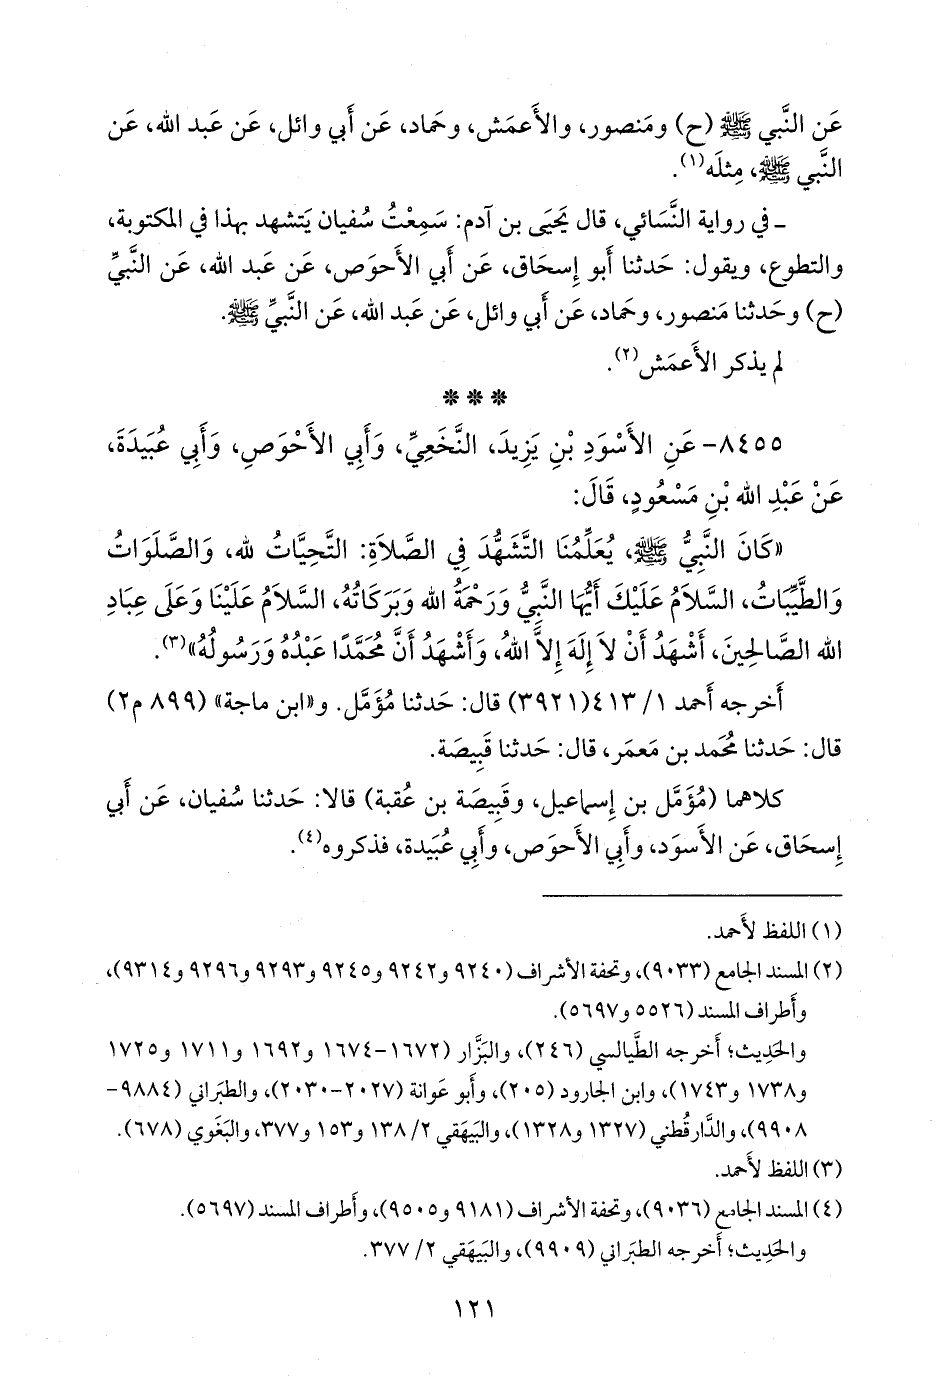 عَن النَّبي ﷺ (ح) ومَنصور، والأَعمَش، وحَماد، عَن أَبي وائل، عَن عَبد الله، عَن
النَّبي ﷺ، مِثلَه(١).
ـ في رواية النَّسَائي، قال يَحيَى بن آدم: سَمِعْتُ سُفيان يَتشهد بهذا في المكتوبة،
والتطوع، ويقول: حَدثنا أَبو إسحَاق، عَن أَبي الأَحوَص، عَن عَبد الله، عَن النَّبيِّ
(ح) وحَدثنا مَنصور، وحَماد، عَن أَبي وائل، عَن عَبد الله، عَن النَّبيِّ ﷺ.
لم يذكر الأَعمَش(٢).
***
٨٤٥٥- عَنِ الأَسْوَدِ بْنِ يَزِيدَ، النَّخَعِيِّ، وَأَبِي الأَحْوَصِ، وَأَبِي عُبَيدَةَ،
عَنْ عَبْدِ الله بْنِ مَسْعُودٍ، قَالَ:
«كَانَ النَّبِيُّ ﷺ، يُعَلِّمُنَا التَّشَهُّدَ فِي الصَّلاَةِ: التَّحِيَّاتُ لله، وَالصَّلَوَاتُ
وَالطَّيِّبَاتُ، السَّلاَمُ عَلَيْكَ أَيُّهَا النَّبِيُّ وَرَحْمَةُ الله وَبَرَكَاتُهُ، السَّلاَمُ عَلَيْنَا وَعَلَى عِبَادِ
الله الصَّالِحِينَ، أَشْهَدُ أَنْ لاَ إِلَهَ إِلاَّ اللهُ، وَأَشْهَدُ أَنَّ مُحَمَّدًا عَبْدُهُ وَرَسُولُهُ»(٣).
أَخرجه أَحمد ١/ ٤١٣(٣٩٢١) قال: حَدثنا مُؤَمَّل. و«ابن ماجة» (٨٩٩ م٢)
قال: حَدثنا مُحَمد بن مَعمَر، قال: حَدثنا قَبِيصَة.
كلاهما (مُؤَمَّل بن إِسماعيل، وقَبِيصَة بن عُقبة) قالا: حَدثنا سُفيان، عَن أَبي
إِسحَاق، عَن الأَسوَد، وأَبي الأَحوَص، وأَبي عُبَيدة، فذكروه(٤).
(١) اللفظ لأَحمد.
(٢) المسند الجامع (٩٠٣٣)، وتحفة الأشراف (٩٢٤٠ و٩٢٤٢ و٩٢٤٥ و٩٢٩٣ و٩٢٩٦ و٩٣١٤)،
وأَطراف المسند (٥٥٢٦ و٥٦٩٧).
والحَدِيث؛ أَخرجه الطَّيالسي (٢٤٦)، والبَزَّار (١٦٧٢-١٦٧٤ و١٦٩٢ و١٧١١ و١٧٢٥
و١٧٣٨ و١٧٤٣)، وابن الجارود (٢٠٥)، وأَبو عَوانة (٢٠٢٧-٢٠٣٠)، والطبَراني (٩٨٨٤-
٩٩٠٨)، والدَّارقُطني (١٣٢٧ و١٣٢٨)، والبَيهَقي ٢/ ١٣٨ و١٥٣ و٣٧٧، والبَغَوي (٦٧٨).
(٣) اللفظ لأَحمد.
(٤) المسند الجامع (٩٠٣٦)، وتحفة الأشراف (٩١٨١ و٩٥٠٥)، وأَطراف المسند (٥٦٩٧).
والحَدِيث؛ أَخرجه الطبَراني (٩٩٠٩)، والبَيهَقي ٢/ ٣٧٧.
١٢١